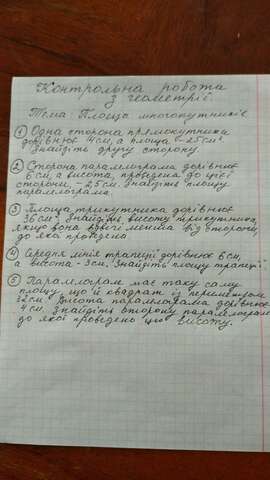 Контрольна робота
з геометрії.
Тема: Площа многокутників.
① Одна сторона прямокутника
дорівнює 4см, а площа - 25 см².
Знайдіть другу сторону
② Сторона паралелограма дорівнює
6см, а висота, проведена до цієї
сторони, - 2,5см. Знайдіть площу
паралелограма.
③ Площа трикутника дорівнює
36см². Знайдіть висоту трикутника,
якщо вона вдвічі менша від сторони,
до якої проведена
④ Середня лінія трапеції дорівнює 6см,
а висота - 3см. Знайдіть площу трапеції.
⑤ Паралелограм має таку саму
площу, що й квадрат із периметром
32см. Висота паралелограма дорівнює
4см. Знайдіть сторону паралелограма
до якої проведено цю висоту.